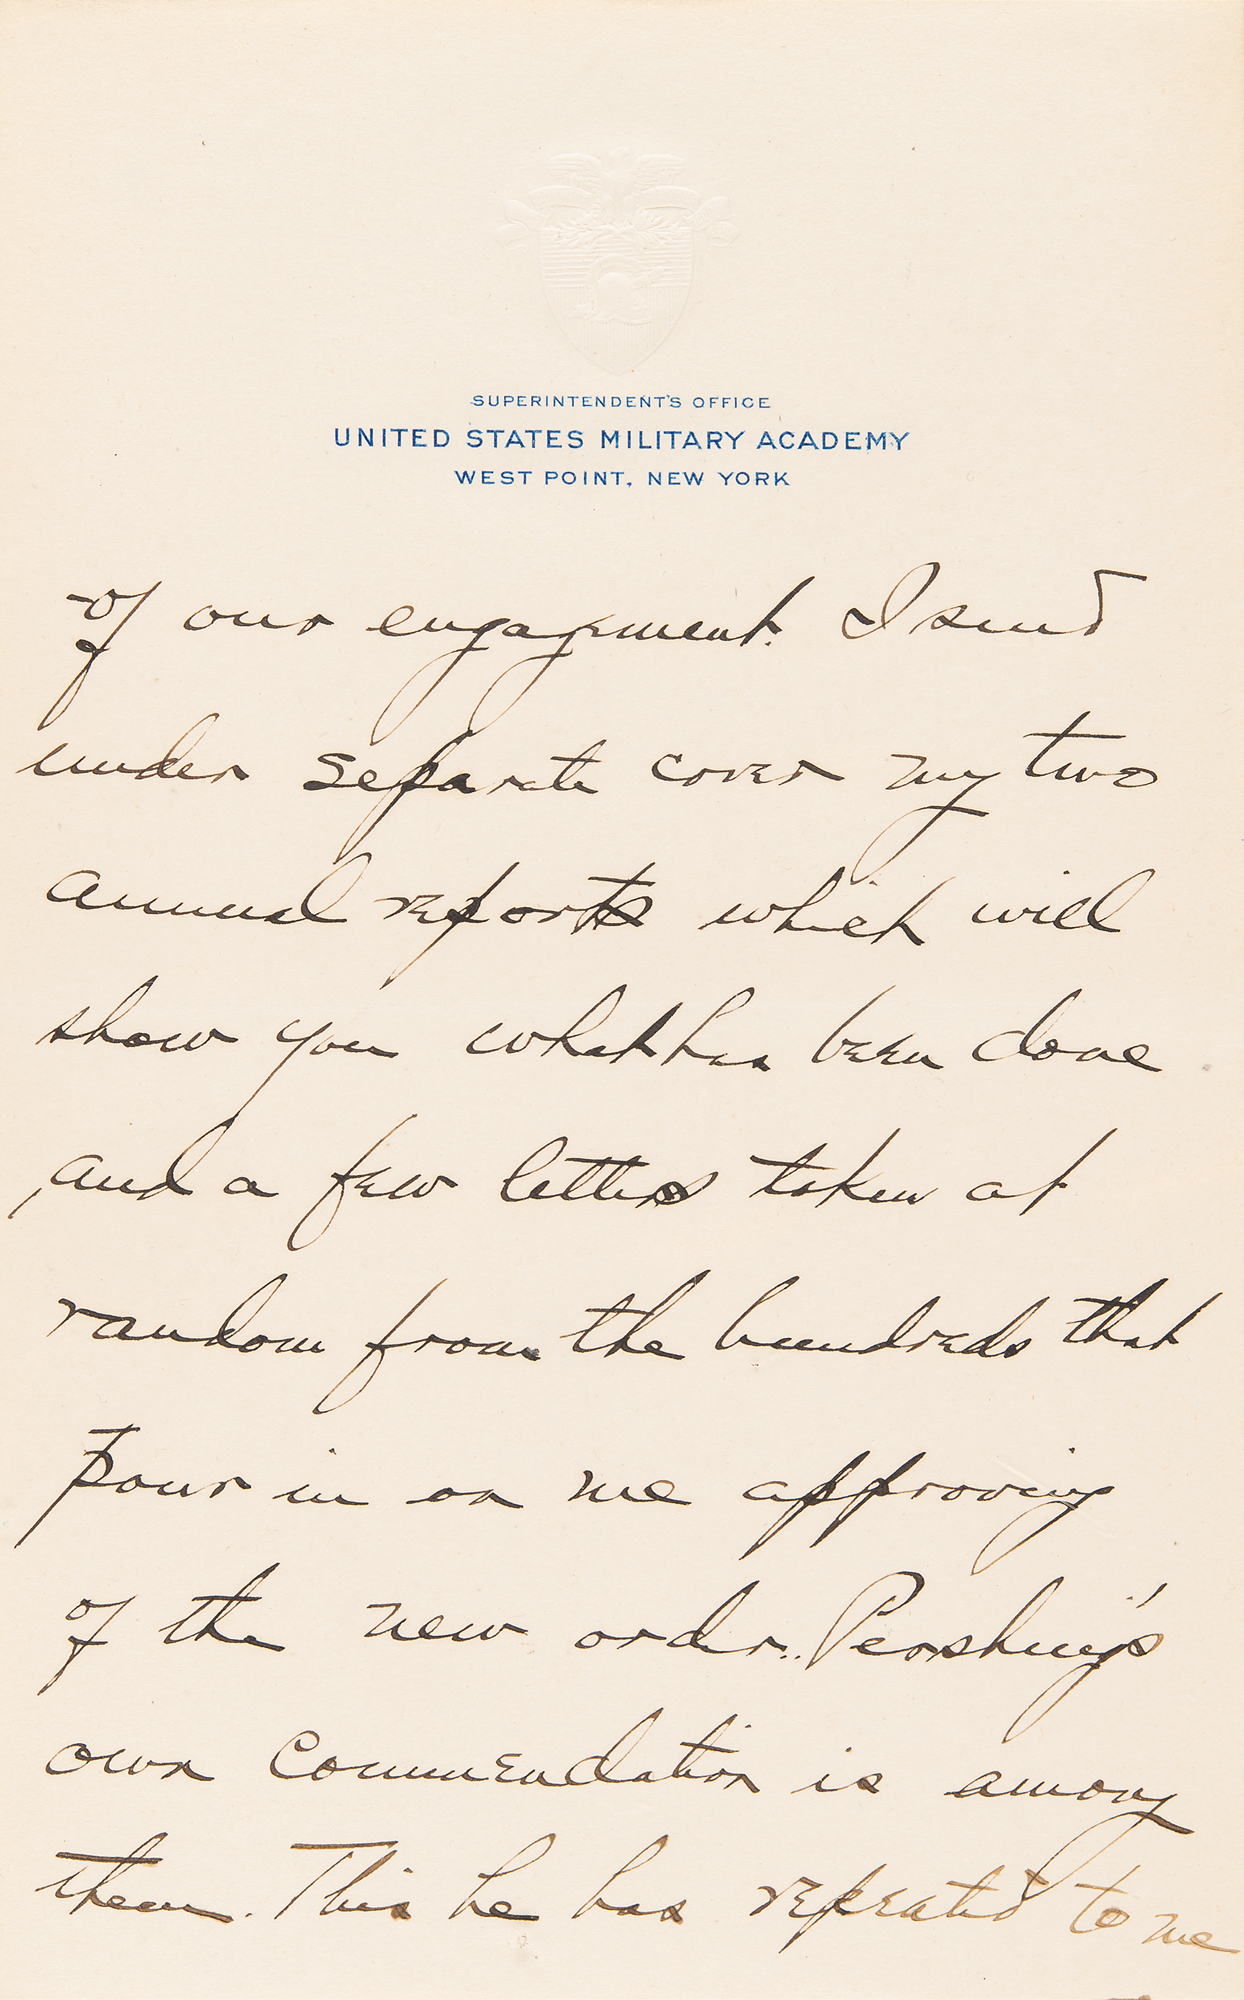 SUPERINTENDENT'S OFFICE
UNITED STATES MILITARY ACADEMY
WEST POINT, NEW YORK
of our engagement. I send
under separate cover my two
annual reports which will
show you what has been done
and a few letters taken at
random from the hundreds that
pour in on me approving
of the new order. Pershing's
own commendation is among
them. This he has repeated to me